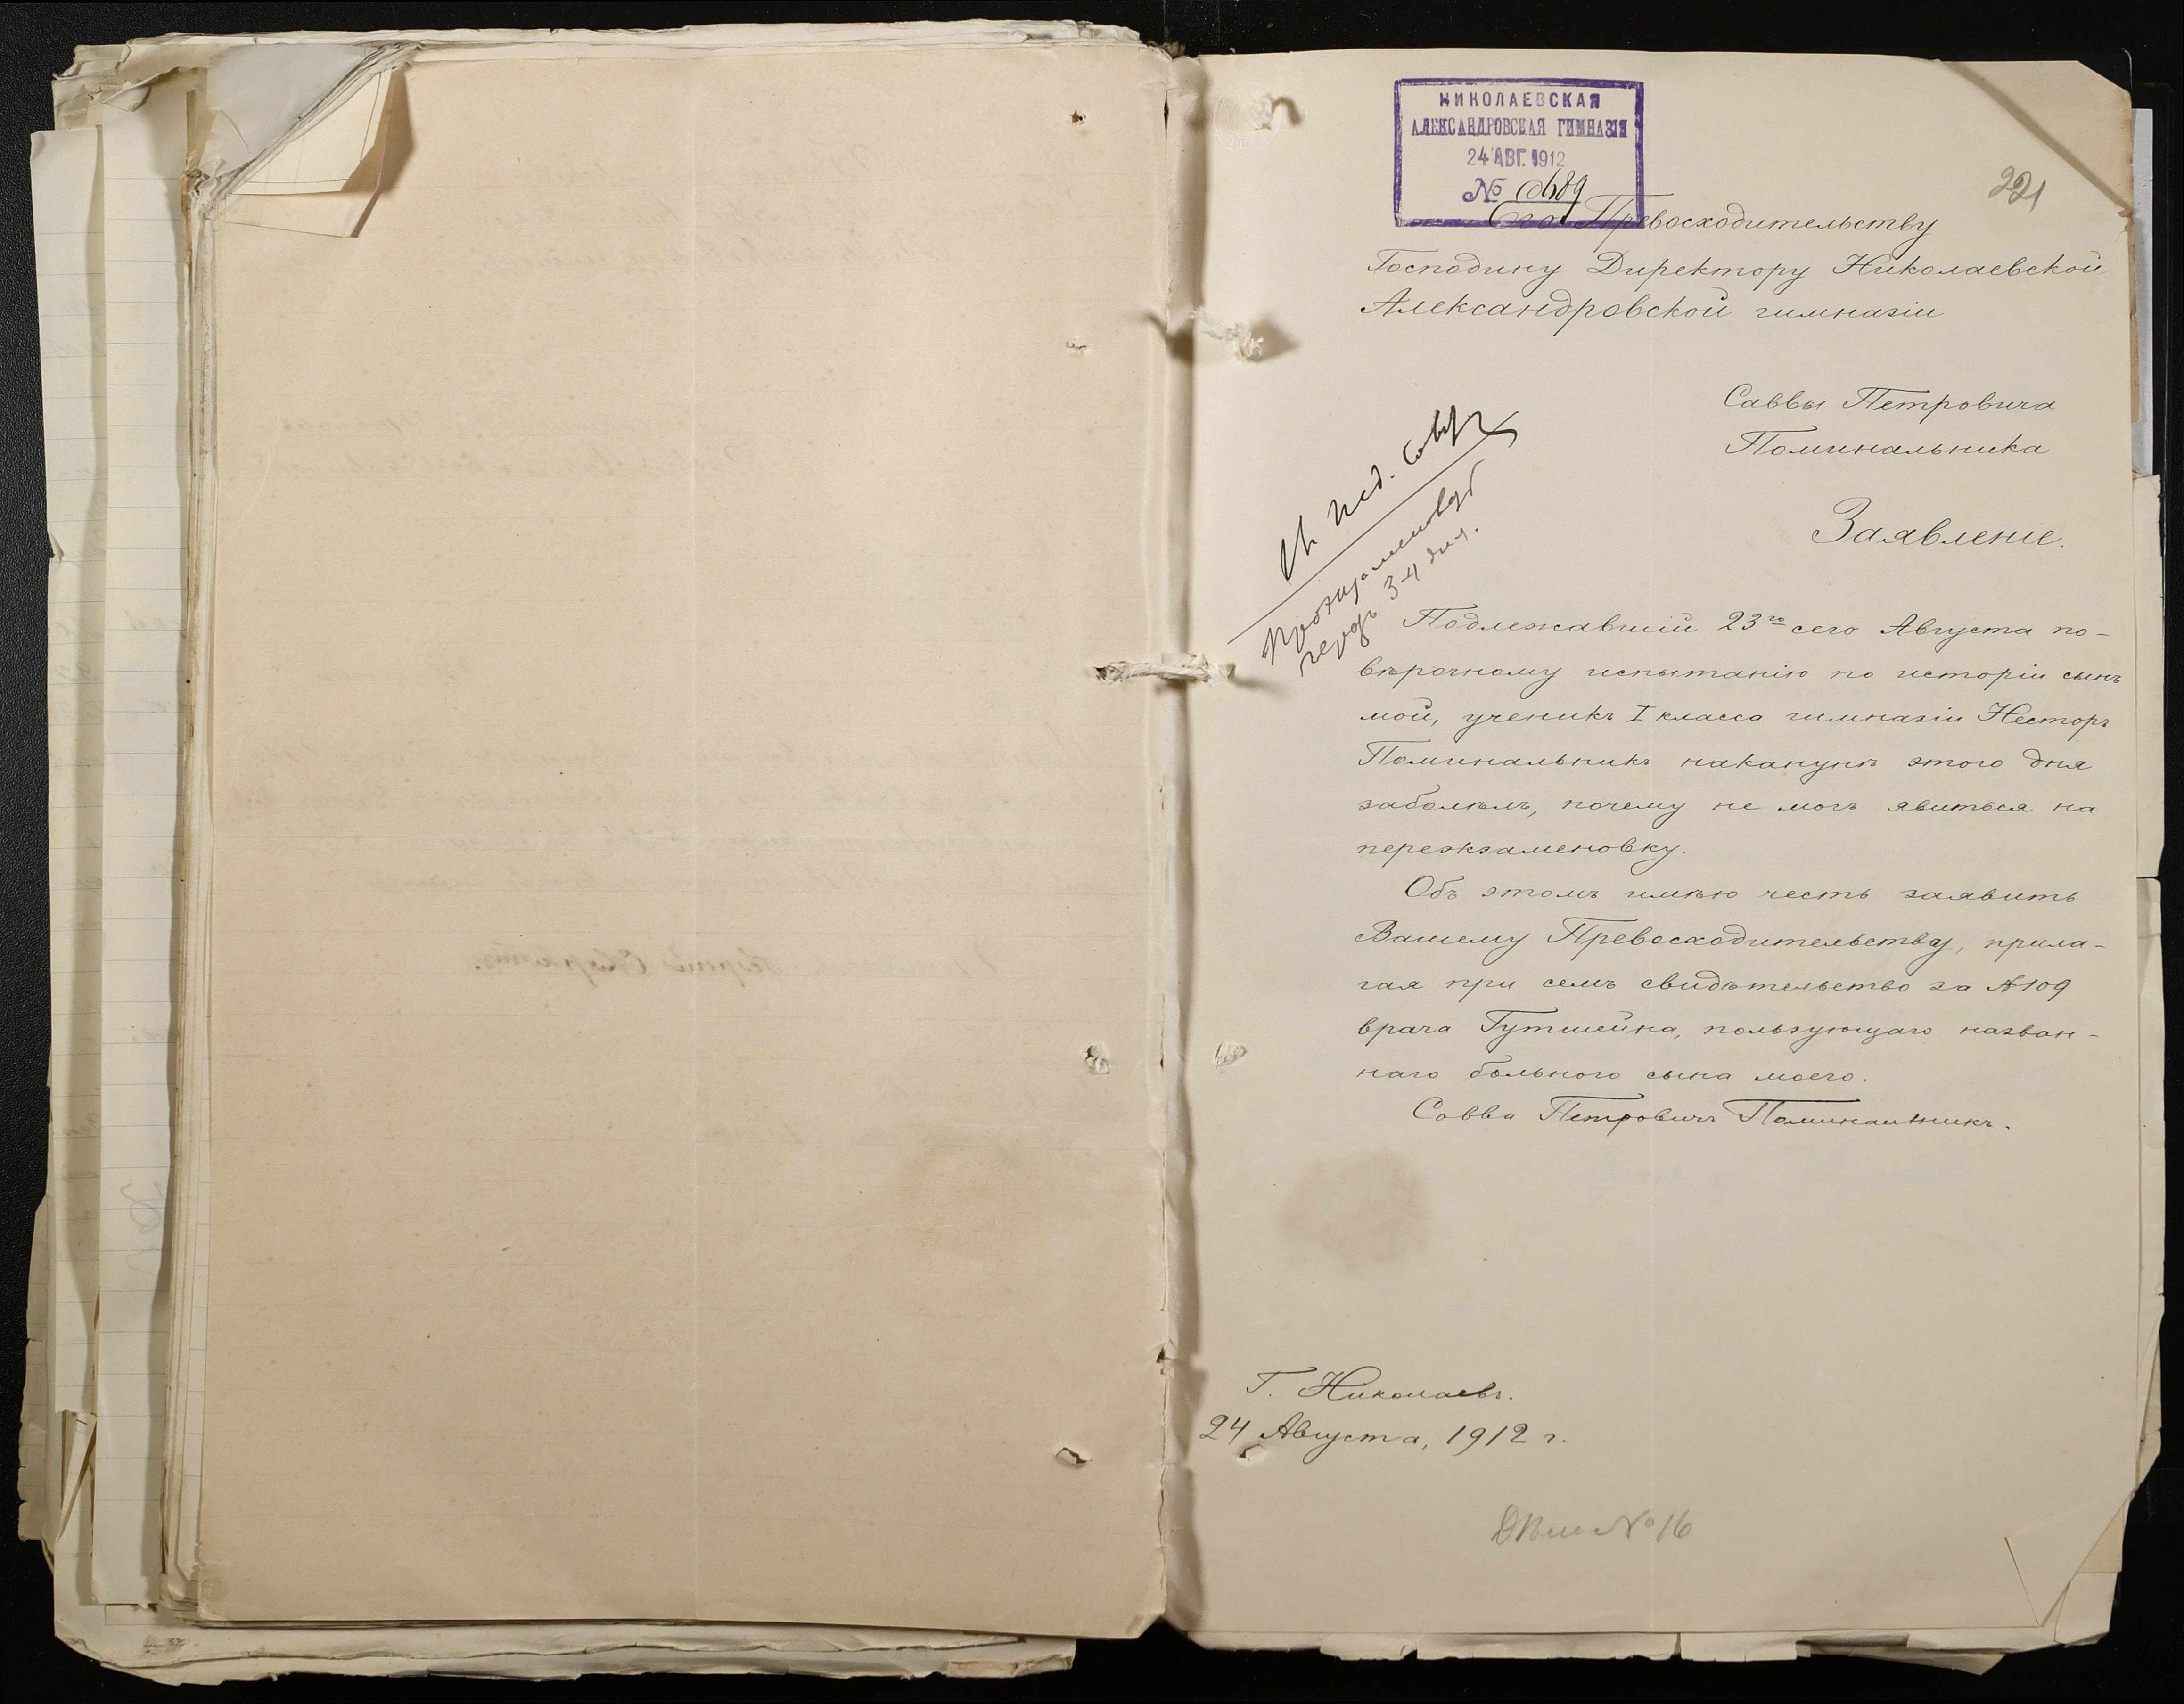 НИКОЛАЕВСКАЯ
АЛЕКСАНДРОВСКАЯ ГИМНАЗІЯ
24 АВГ. 1912
№
221
Его Превосходительству
Господину Директору Николаевской
Александровской гимназіи
Саввы Петровича
Поминальника
Заявленіе.
Въ пед. Совѣтъ
Проэкзаменовать
черезъ 3-4 дня.
Подлежавшій 23го сего Августа по-
вѣрочному испытанію по исторіи сынъ
мой, ученикъ I класса гимназіи Несторъ
Поминальникъ наканунѣ этого дня
заболѣлъ, почему не могъ явиться на
переэкзаменовку.
Объ этомъ имѣю честь заявить
Вашему Превосходительству, прила-
гая при семъ свидѣтельство за №109
врача Гутшейна, пользующаго назван-
наго больного сына моего.
Савва Петровичъ Поминальникъ.
Г. Николаевъ.
24 Августа, 1912 г.
Дѣло №16